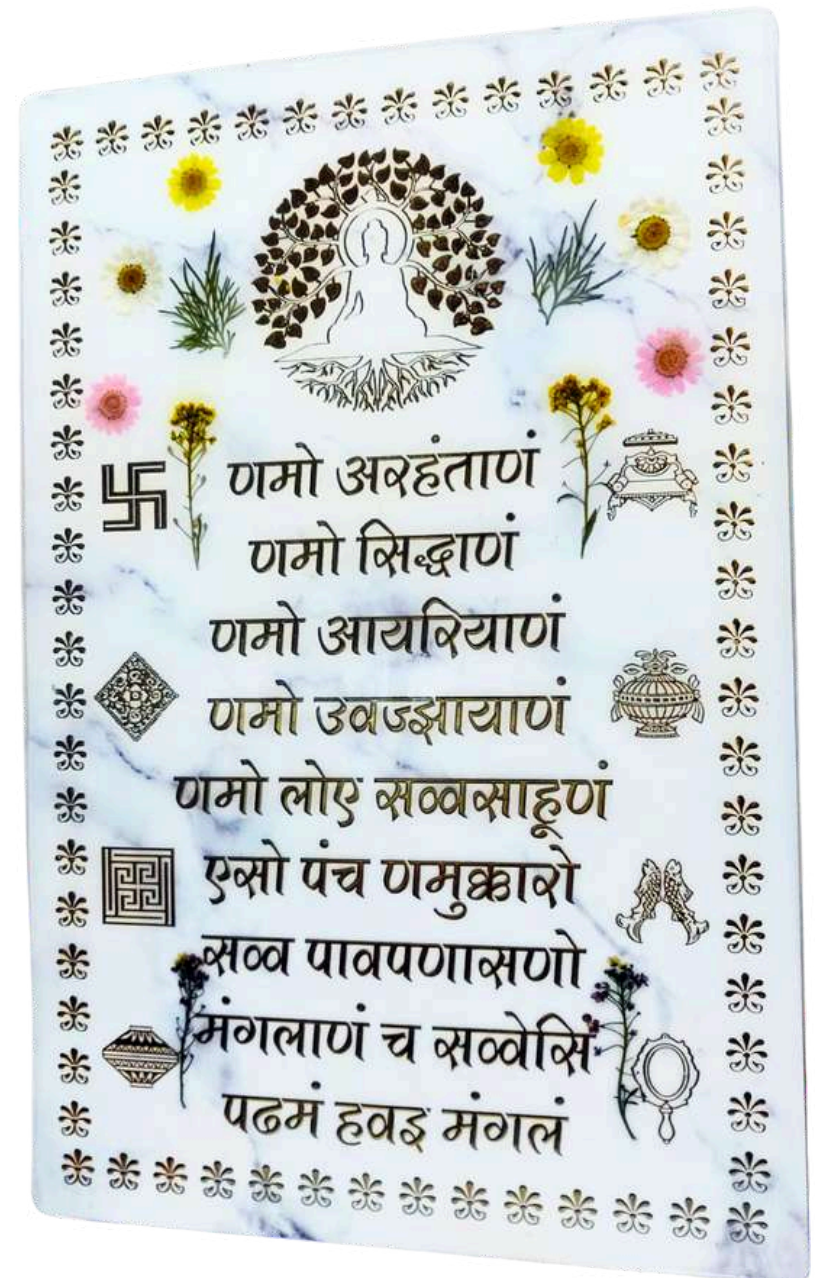 णमो अरहंताणं
णमो सिद्धाणं
णमो आयरियाणं
णमो उवज्झायाणं
णमो लोए सव्वसाहूणं
एसो पंच णमुक्कारो
सव्व पावपणासणो
मंगलाणं च सव्वेसिं
पढमं हवइ मंगलं